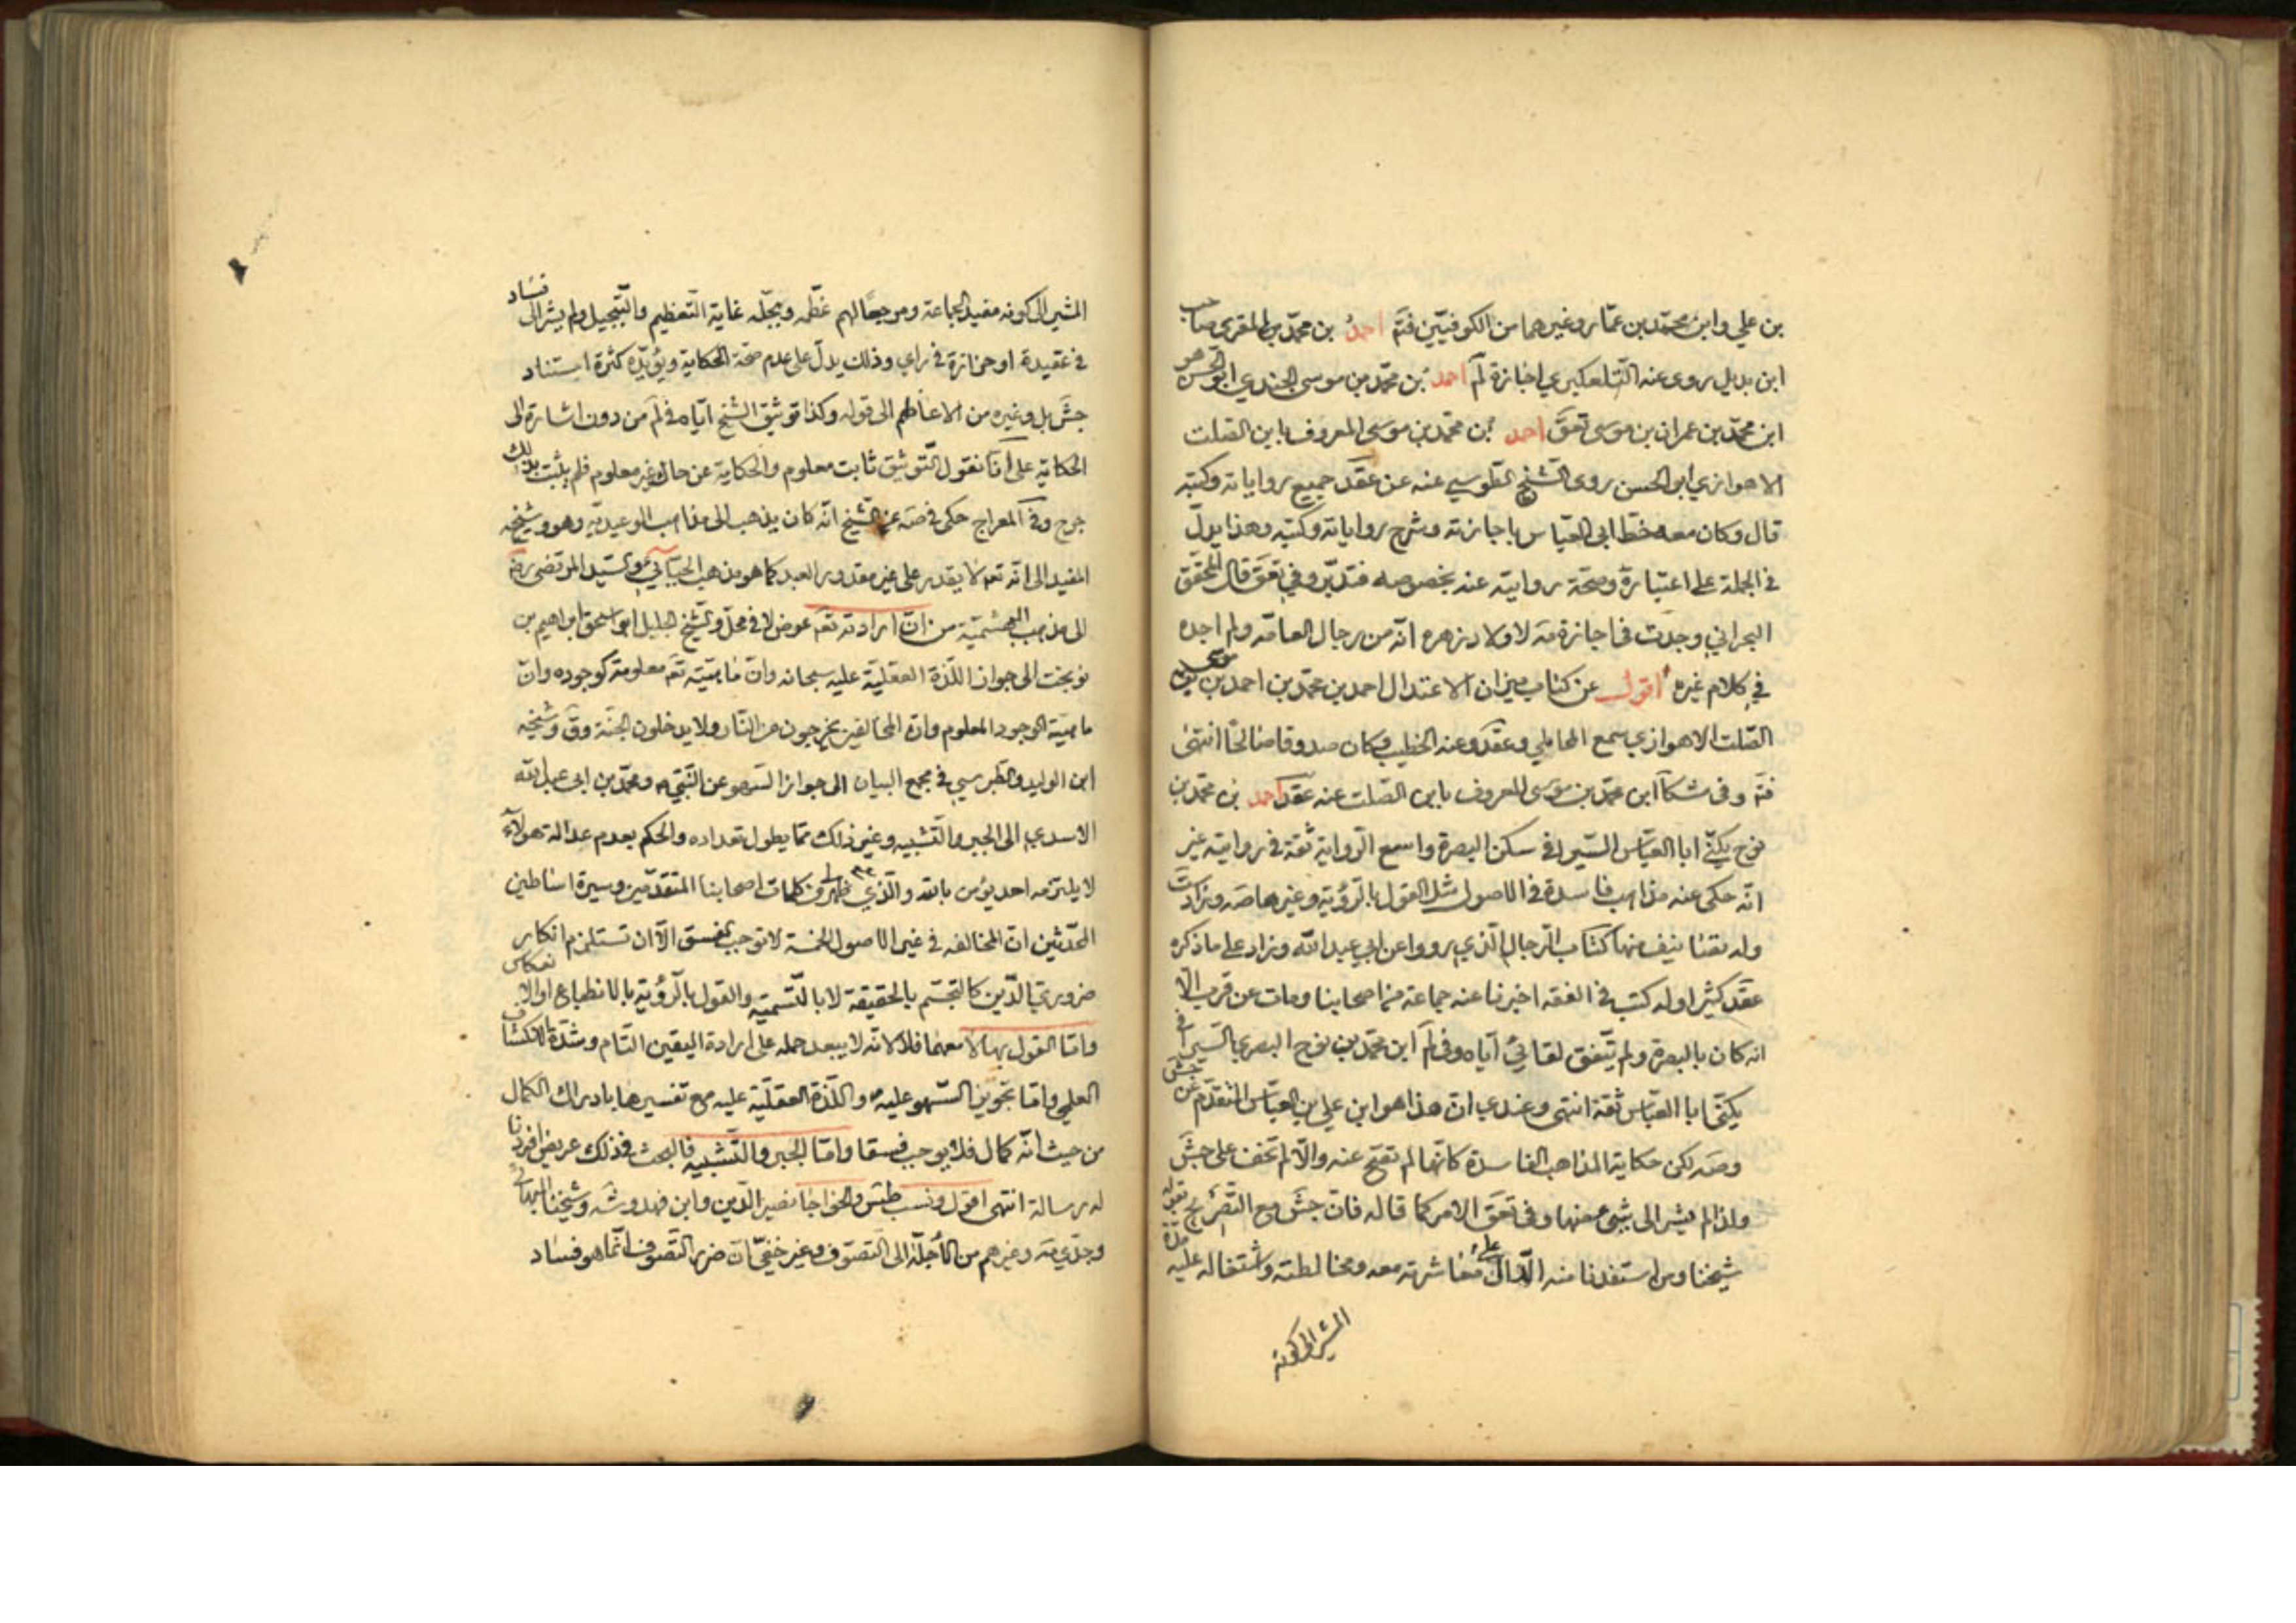 بن علي وابن محمد بن عمار وغيرهما من الكوفيين فتم احمد بن محمد بن المقرى صاحب
ابن بديل روى عنه التلعكبري اجازة لم احمد بن محمد بن موسى الجندي ابو الحسن هو
ابن محمد بن عمران بن موسى تعق احمد بن محمد بن موسى المعروف بابن الصلت
الاهوازي ابو الحسن روى الشيخ الطوسي عنه عن عقد جميع رواياته وكتبه
قال وكان معه خط ابى العباس باجازته وشرح رواياته وكتبه وهذا يدل
في الجملة على اعتباره وصحة روايته عنه بخصوصه فتدبر وفي تعق قال المحقق
البحراني وجدت في اجازة مة لاولاد زهره انه من رجال العامة ولم اجده
في كلام غيره اقول عن كتاب ميزان الاعتدال احمد بن محمد بن احمد بن موسى
الصلت الاهوازي سمع المحاملي وعقد وعنه الخطيب وكان صدوقا صالحا انتهى
فتم وفي مشكا ابن محمد بن موسى المعروف بابن الصلت عنه عقد احمد بن محمد بن
نوح يكنى ابا العباس السيرافي سكن البصرة واسع الرواية ثقة في روايته غير
انه حكى عنه مذاهب فاسدة في الاصول مثل القول بالرؤية وغيرها صه وزاد ست
وله تصانيف منها كتاب الرجال الذي رووا عن ابي عبد الله وزاد على ما ذكره
عقد كثيرا وله كتب في الفقه اخبرنا عنه جماعة من اصحابنا ومات عن قرب الا
انه كان بالبصرة ولم يتفق لقائي اياه وفي لم ابن محمد بن نوح البصري السيرافي
يكنى ابا العباس ثقة انتهى وعندي ان هذا هو ابن علي بن العباس المتقدم عن جش
وصه لكن حكاية المذاهب الفاسدة كانها لم تصح عنه والا لم تخف على جش
ولذا لم يشر الى شيء منها وفي تعق الامر كما قاله فان جش مع التصريح بقوله
شيخنا ومن استفدنا منه الدال على معاشرته معه ومخالطته واشتغاله عليه
المشير الى كونه
المشير الى كونه مفيد الجماعة ومرجعا لهم عظمه وبجله غاية التعظيم والتبجيل ولم يشر الى فساد
في عقيدة او حزازة في راي وذلك يدل على عدم صحة الحكاية ويؤيده كثرة استناد
جش بل وغيره من الاعاظم الى قوله وكذا توثيق الشيخ اياه في لم من دون اشارة الى
الحكاية على انا نقول التوثيق ثابت معلوم والحكاية عن حاله غير معلوم فلم يثبت بذلك
جرح وفي المعراج حكى في صه عن الشيخ انه كان يذهب الى مذاهب الوعيدية وهو وشيخه
المفيد الى انه تع لا يقدر على غير مقدور العبد كما هو مذهب الجبائي والسيد المرتضى رضه
الى مذهب البهشمية من ان ارادته تع عرض لا في محل والشيخ الجليل ابو اسحق ابراهيم بن
نوبخت الى جواز اللذة العقلية عليه سبحانه وان ماهيته تع معلومة كوجوده وان
ماهيته الوجود المعلوم وان المخالفين يخرجون من النار ولا يدخلون الجنة وق وشيخه
ابن الوليد والطبرسي في مجمع البيان الى جواز السهو عن النبي ومحمد بن ابى عبد الله
الاسدي الى الجبر والتشبيه وغير ذلك مما يطول تعداده والحكم بعدم عدالة هولاء
لا يلتزمه احد يؤمن بالله والذي ظهر لي من كلمات اصحابنا المتقدمين وسيرة اساطين
المحدثين ان المخالفه في غير الاصول الخمسة لا توجب الفسق الا ان تستلزم انكار
ضروري الدين كالتجسم بالحقيقة لا بالتسمية والقول بالرؤية بالانطباع او الانعكاس
واما القول بها لا معهما فلا لانه لا يبعد حمله على ارادة اليقين التام وشدة الانكشاف
العلمي واما تجويز السهو عليه واللذة العقلية عليه مع تفسيرها بادراك الكمال
من حيث انه كمال فلا يوجب فسقا واما الجبر والتشبيه فالبحث في ذلك عريض افردنا
له رسالة انتهى اقول ونسب طس والخواجا نصير الدين وابن فهد وشه وشيخنا البهائي
وجدي مة وغيرهم من الاجلة الى التصوف وغير خفي ان ضرر التصوف انما هو فساد